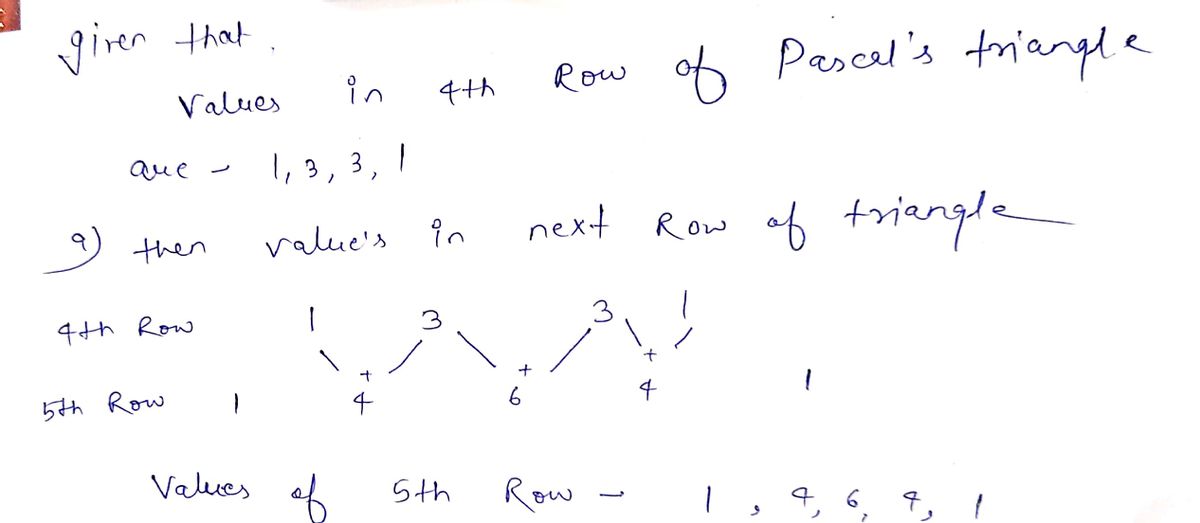 given that.
Values in 4th Row of Pascal's triangle
are - 1, 3, 3, 1
a) then value's in next Row of triangle
4th Row 1 3 3 1
+ + +
5th Row 1 4 6 4 1
Values of 5th Row - 1, 4, 6, 4, 1